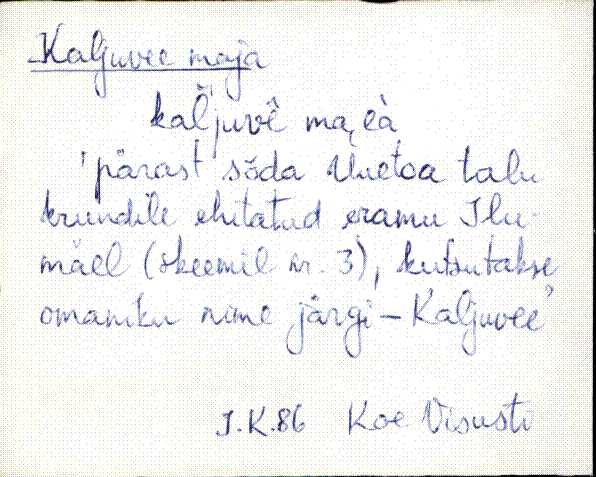 Kaljuvee maja
kal̆juvê ma, eà
'pärast sõda Uuetoa talu
krundile ehitatud eramu Ilu-
mäel (skeemil nr. 3), kutsutakse
omaniku nime järgi – Kaljuvee'
J.K.86 Koe Visusti